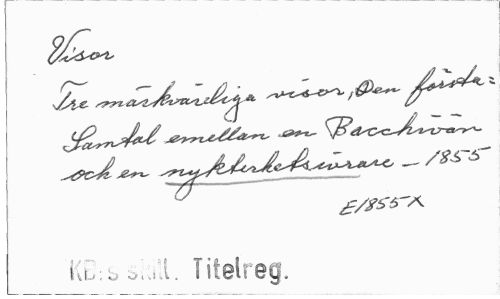 Visor
Tre märkvärdiga visor, Den första=
Samtal emellan en Bacchivän
och en nykterhetsivrare – 1855
E1855X
KB:s skill. Titelreg.